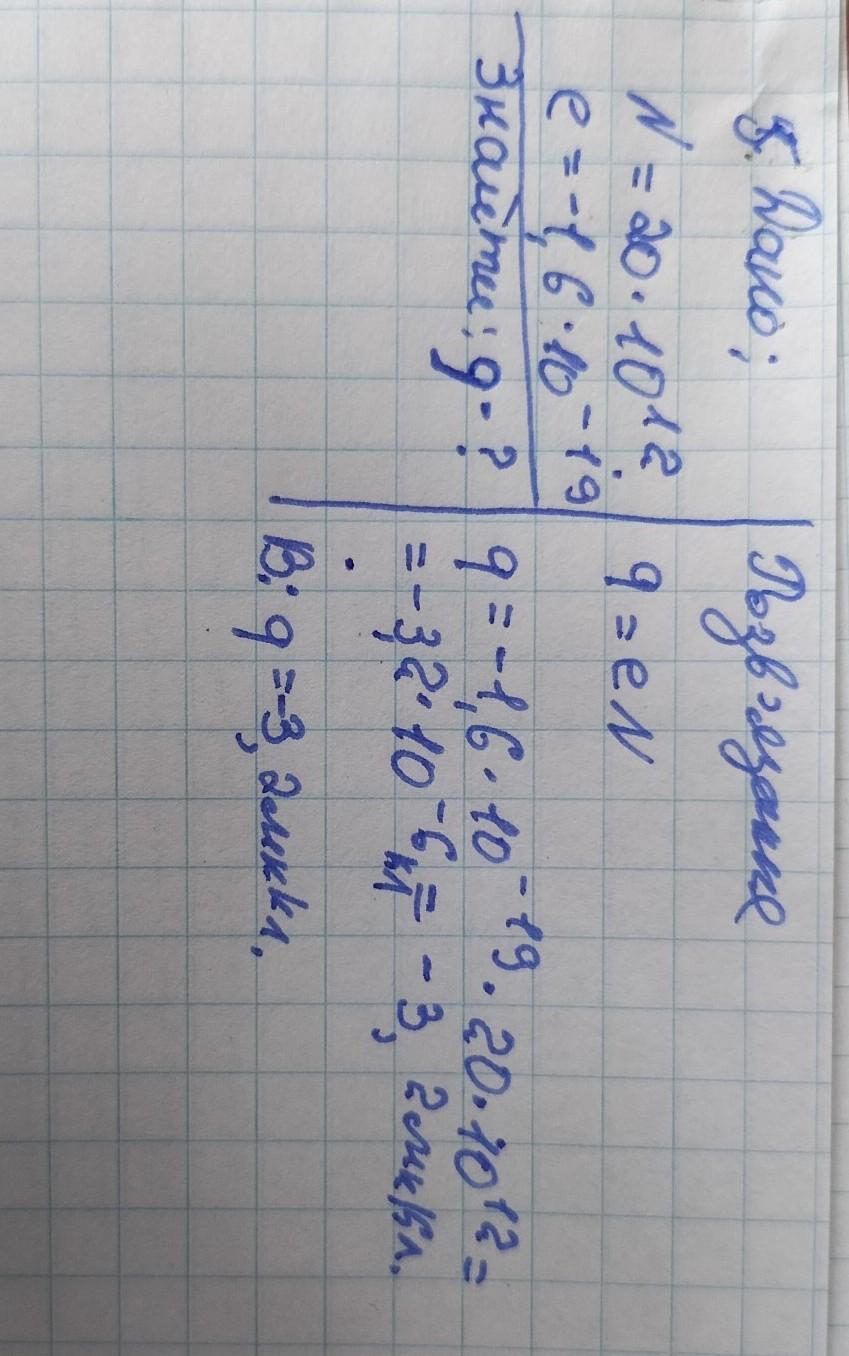 5. Дано:
N = 20·10¹²
e = -1,6·10⁻¹⁹
Знайти: q - ?
Розв'язання
q = eN
q = -1,6·10⁻¹⁹·20·10¹² =
= -3,2·10⁻⁶ Кл = -3,2 мкКл.
В: q = -3,2 мкКл.